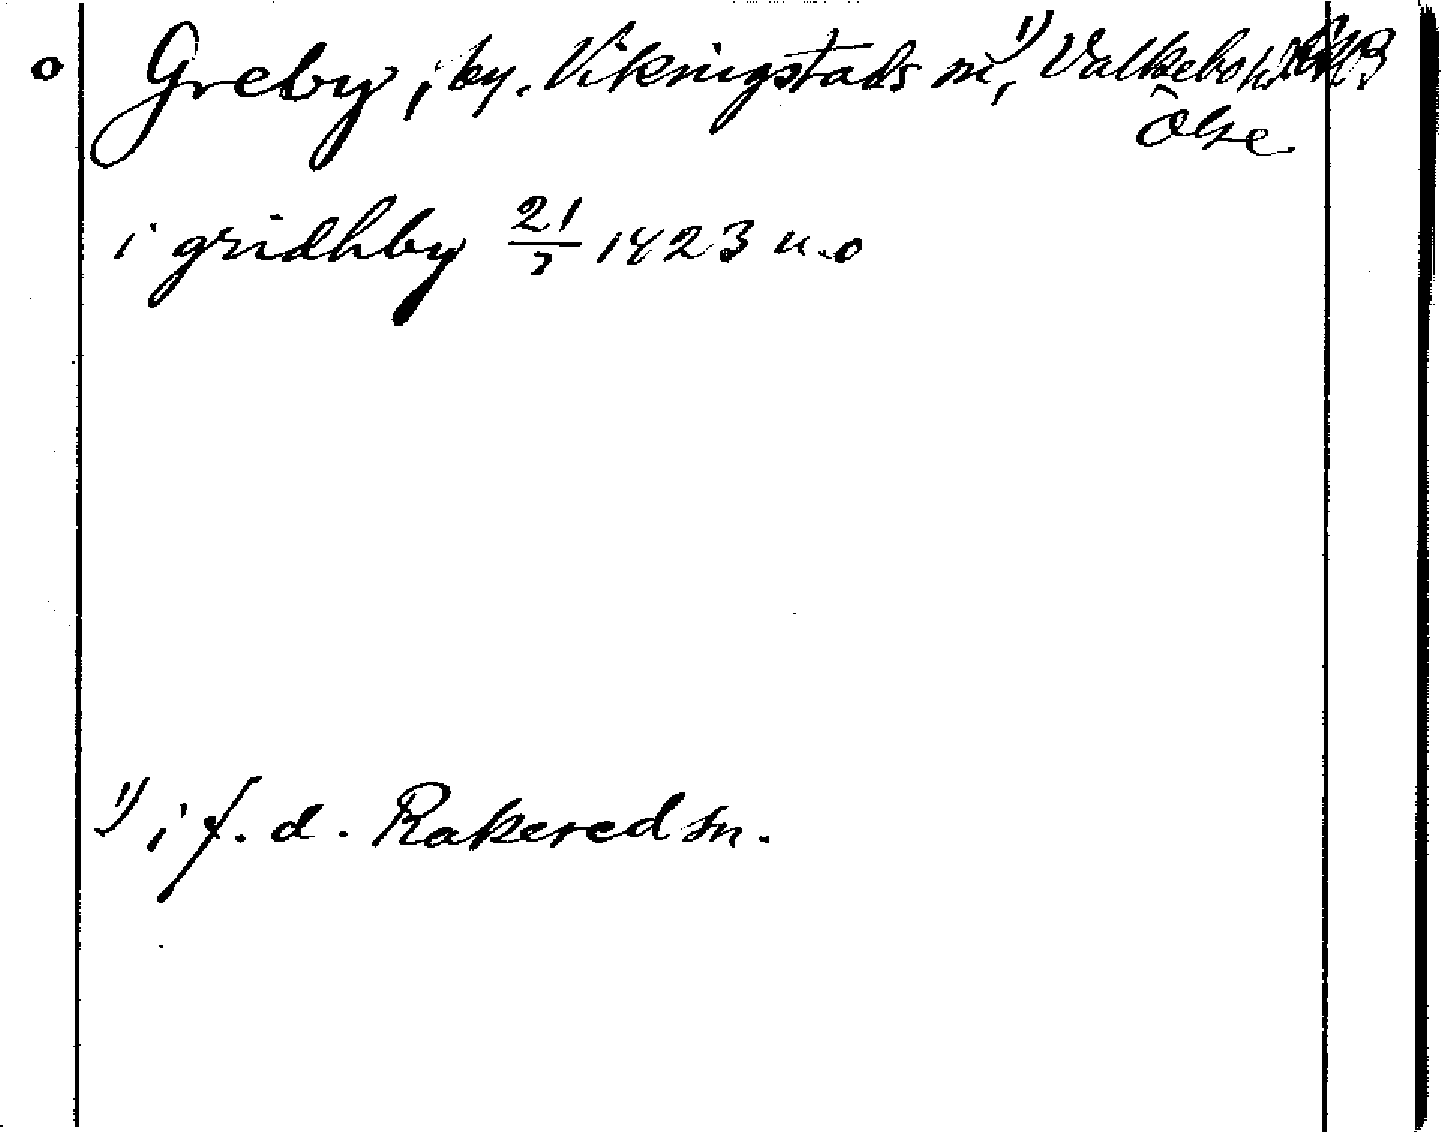 o Greby, by. Vikingstads sn,¹⁾ Valkebo hd
Ög
i gridhby 21/7 1423 u.o
¹⁾ i f.d. Rakered sn.